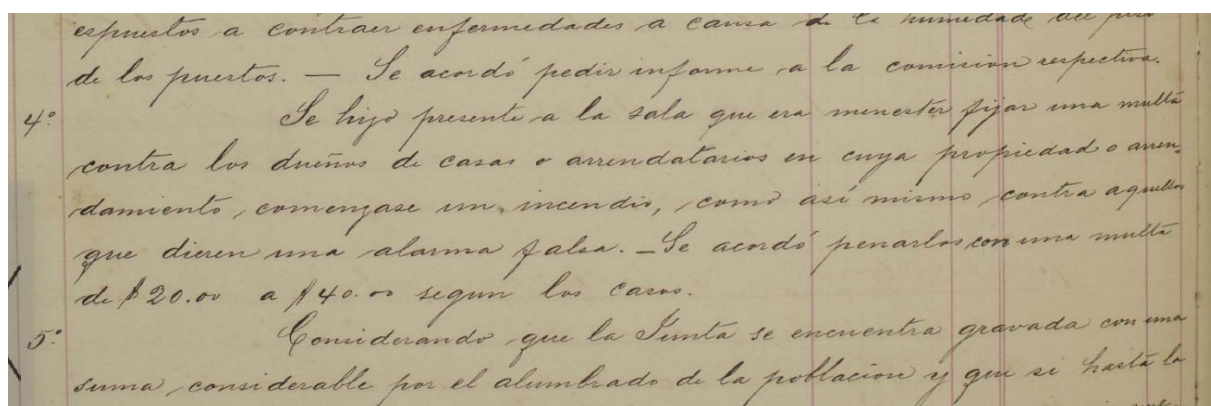 espuestos a contraer enfermedades a causa de la humedade del piso
de los puestos. — Se acordó pedir informe a la comision respectiva.
4º. Se hizo presente a la sala que era menester fijar una multa
contra los dueños de casas o arrendatarios en cuya propiedad o arren-
damiento, comenzase un incendio, como así mismo contra aquellos
que dieren una alarma falsa. — Se acordó penarlos con una multa
de $20.00 a $40.00 segun los casos.
5º. Considerando que la Junta se encuentra gravada con una
suma considerable por el alumbrado de la poblacion y que si hasta la